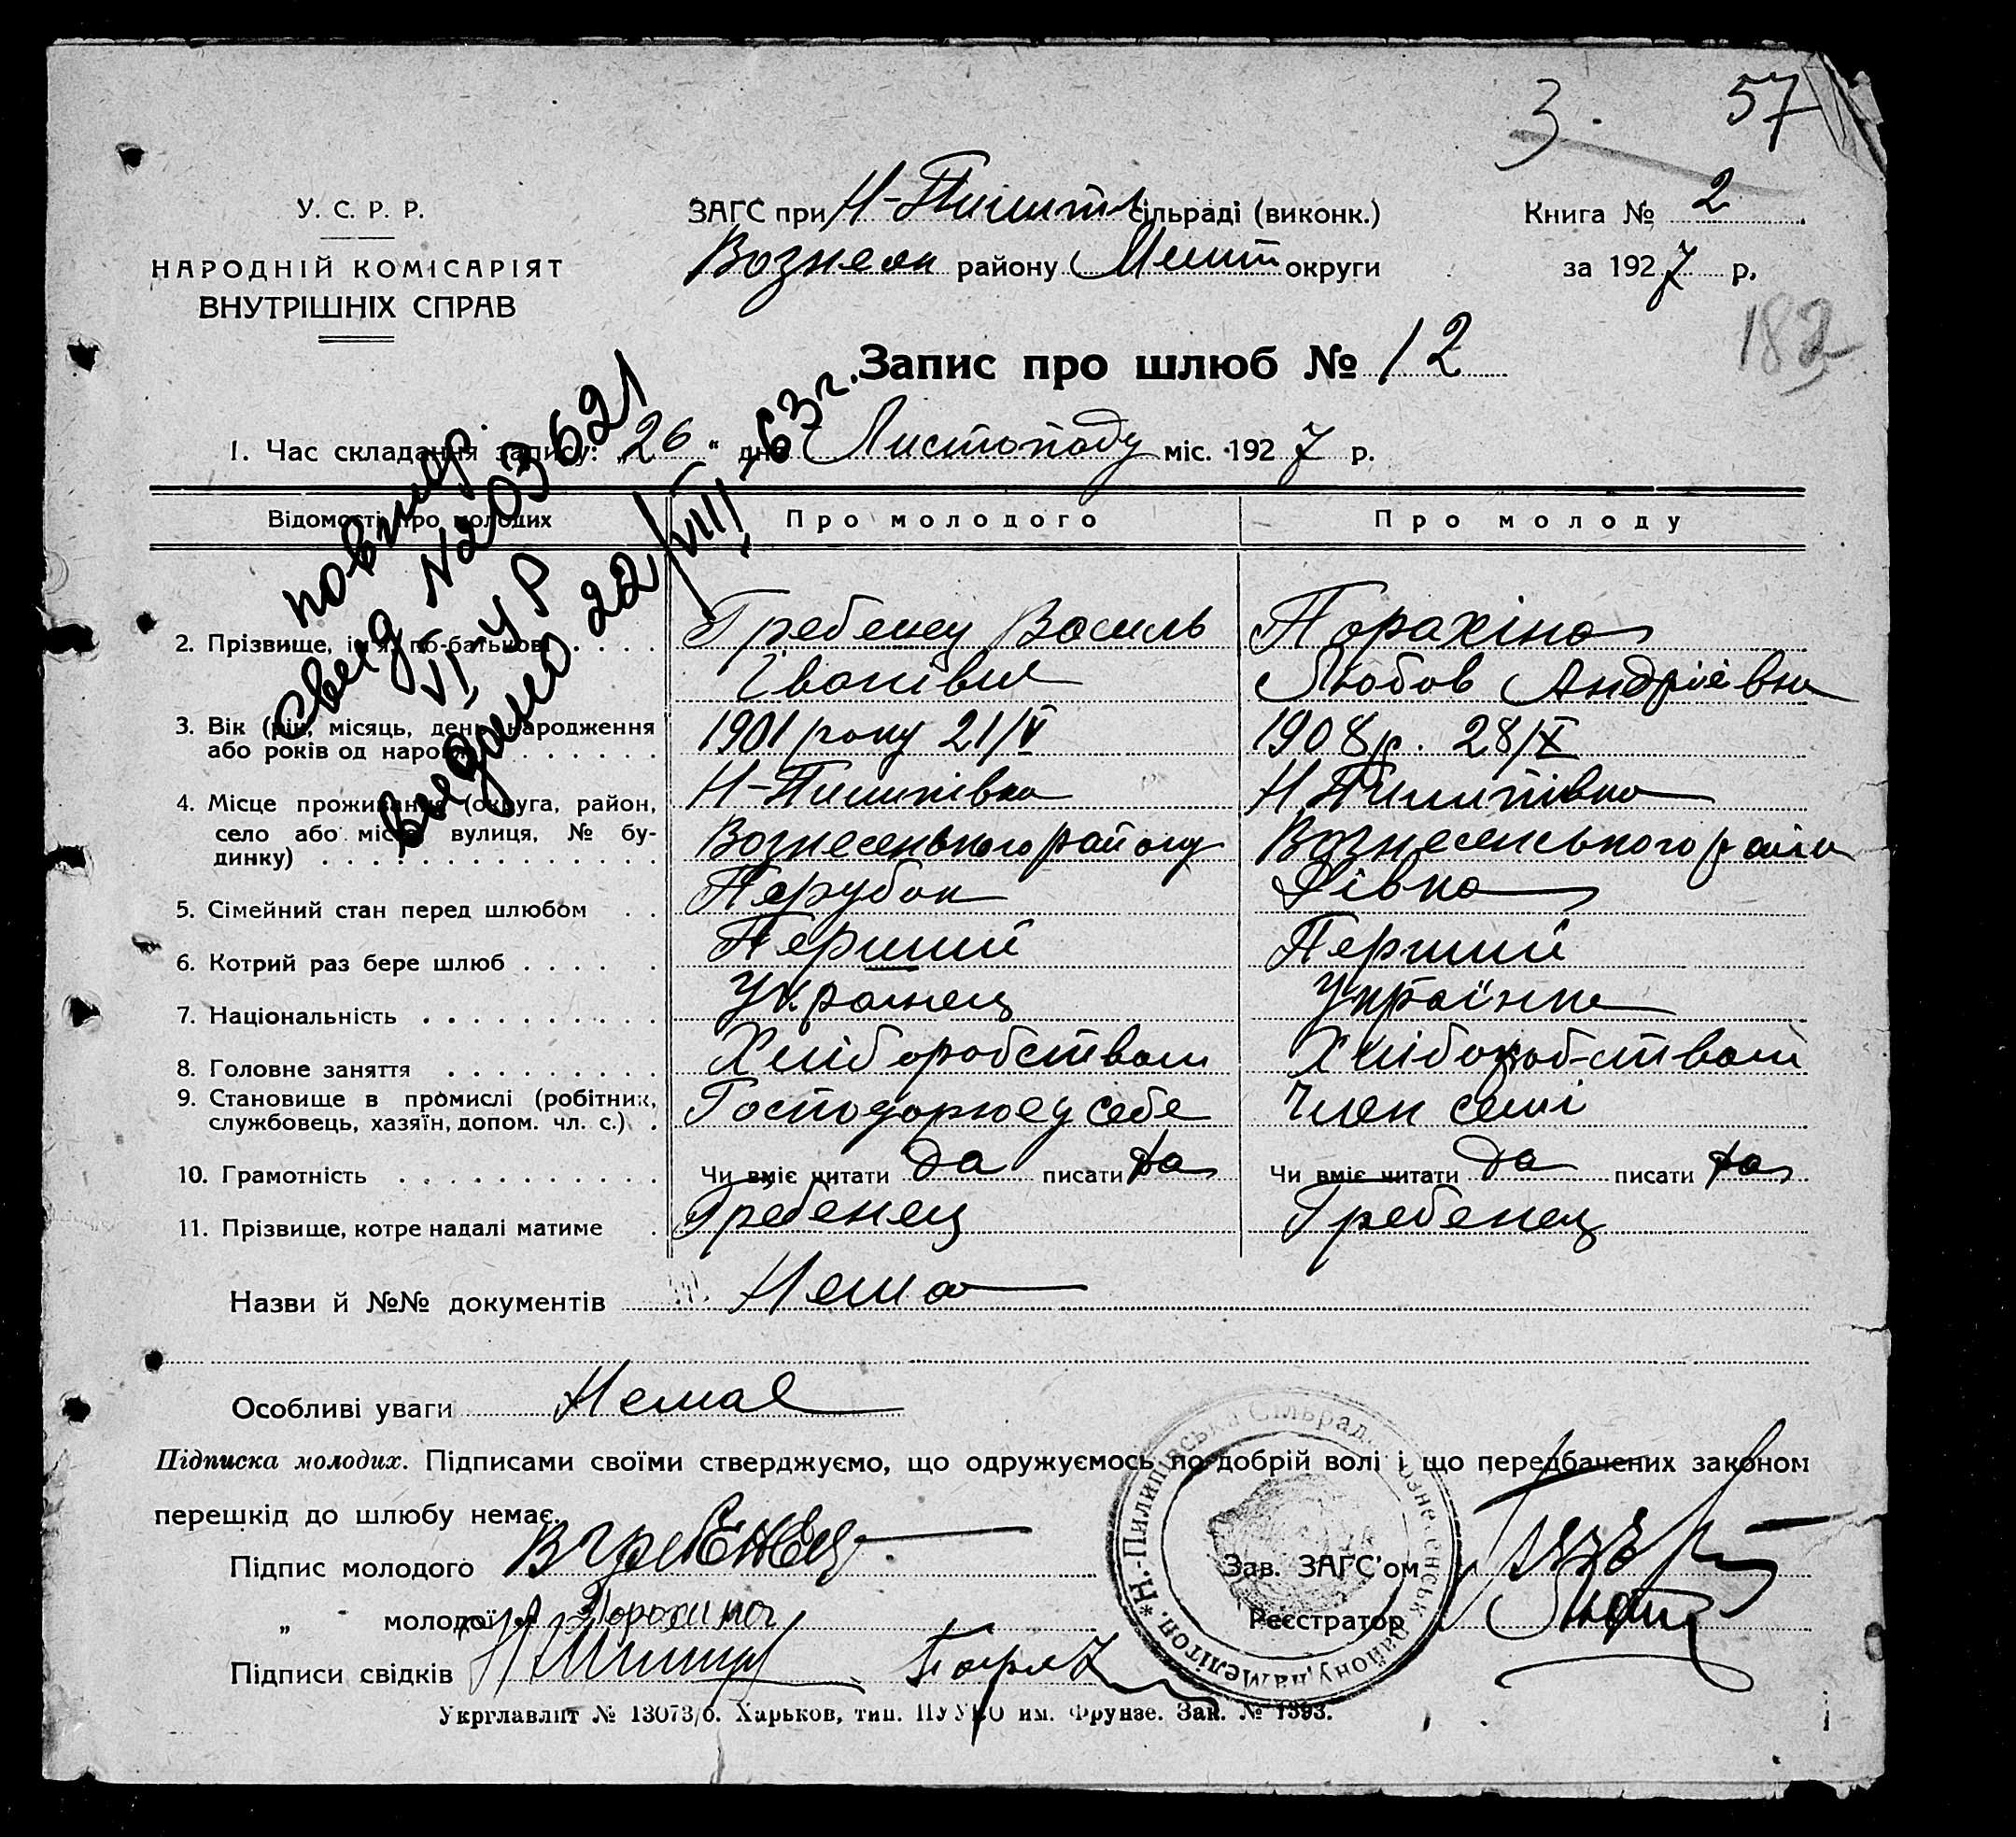 3. 57
У. С. Р. Р.
НАРОДНІЙ КОМІСАРІЯТ
ВНУТРІШНІХ СПРАВ
ЗАГС при Н-Пилип сільраді (виконк.)
Вознесен району Меліт округи
Книга № 2
за 1927 р.
182
Запис про шлюб № 12
1. Час складання запису: „26“ дня Листопаду міс. 1927 р.
повтор.
свид №203621
VI УР
выдано 22/VIII-63г.
Відомості про молодих Про молодого Про молоду
2. Прізвище, ім'я, по-батькові Гребенец Василь Порахіна
Іванівич Любов Андріівна
3. Вік (рік, місяць, день народження 1901 року 21/V 1908 р. 28/X
або років од народж.)
4. Місце проживання (округа, район, Н-Пилипівка Н Пилипівка
село або місто, вулиця, № бу-
динку) Вознесенського району Вознесенського райо
5. Сімейний стан перед шлюбом Парубок Дівка
6. Котрий раз бере шлюб Перший Перший
7. Національність Українец Українка
8. Головне заняття Хліборобством Хліборобством
9. Становище в промислі (робітник, Господорює у себе Член семі
службовець, хазяїн, допом. чл. с.)
10. Грамотність Чи вміє читати да писати да Чи вміє читати да писати да
11. Прізвище, котре надалі матиме Гребенец Гребенец
Назви й №№ документів Нема
Особливі уваги Немає
Підписка молодих. Підписами своїми стверджуємо, що одружуємось по добрій волі і що передбачених законом
перешкід до шлюбу немає.
Підпис молодого В Гребенец
Зав. ЗАГС'ом
„ молодої Порохина
Реєстратор
Підписи свідків
*Н.-Пилипівська Сільрада Вознесенськ району, на Мелітоп.
Укрглавліт № 13073/б. Харьков, тип. ПУУВО им. Фрунзе. Зак. № 1393.